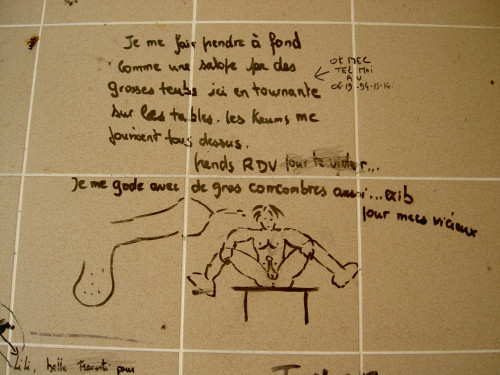 Je me fais prendre à fond
comme une salope par des
grosses teubs ici en tournante
sur les tables. les keums me
jouissent tous dessus.
prends RDV pour te vider...
OK MEC
TEL MOI
AU
Je me gode avec de gros concombres aussi...exib
pour mecs vicieux
Lili, belle